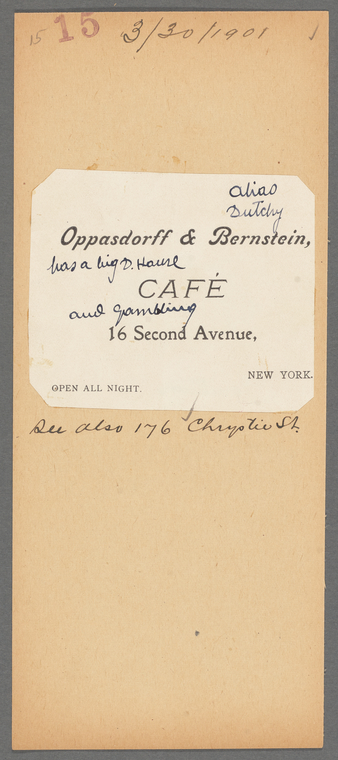 15 15 3/30/1901
alias
Dutchy
Oppasdorff & Bernstein,
has a big D. House
CAFÉ
and gambling
16 Second Avenue,
NEW YORK.
OPEN ALL NIGHT.
See also 176 Chrystie St.